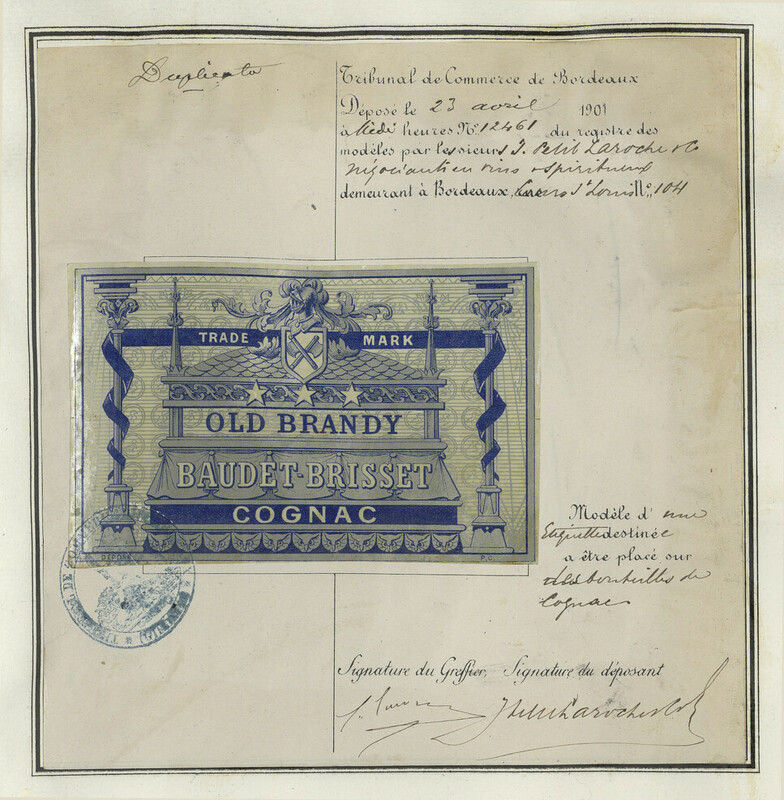 Duplicata
Tribunal de Commerce de Bordeaux
Déposé le 23 avril 1901
à Midi heures No. 12461 du registre des
modèles par les sieurs J. Petit Laroche & Co
négociants en vins & spiritueux
demeurant à Bordeaux, Cours St Louis No. 104
TRADE MARK
OLD BRANDY
BAUDET-BRISSET
COGNAC
DÉPOSÉ
P.O.
Modèle d'une
Etiquette destinée
a être placé sur
des bouteilles de
Cognac
Signature du Greffier, Signature du déposant